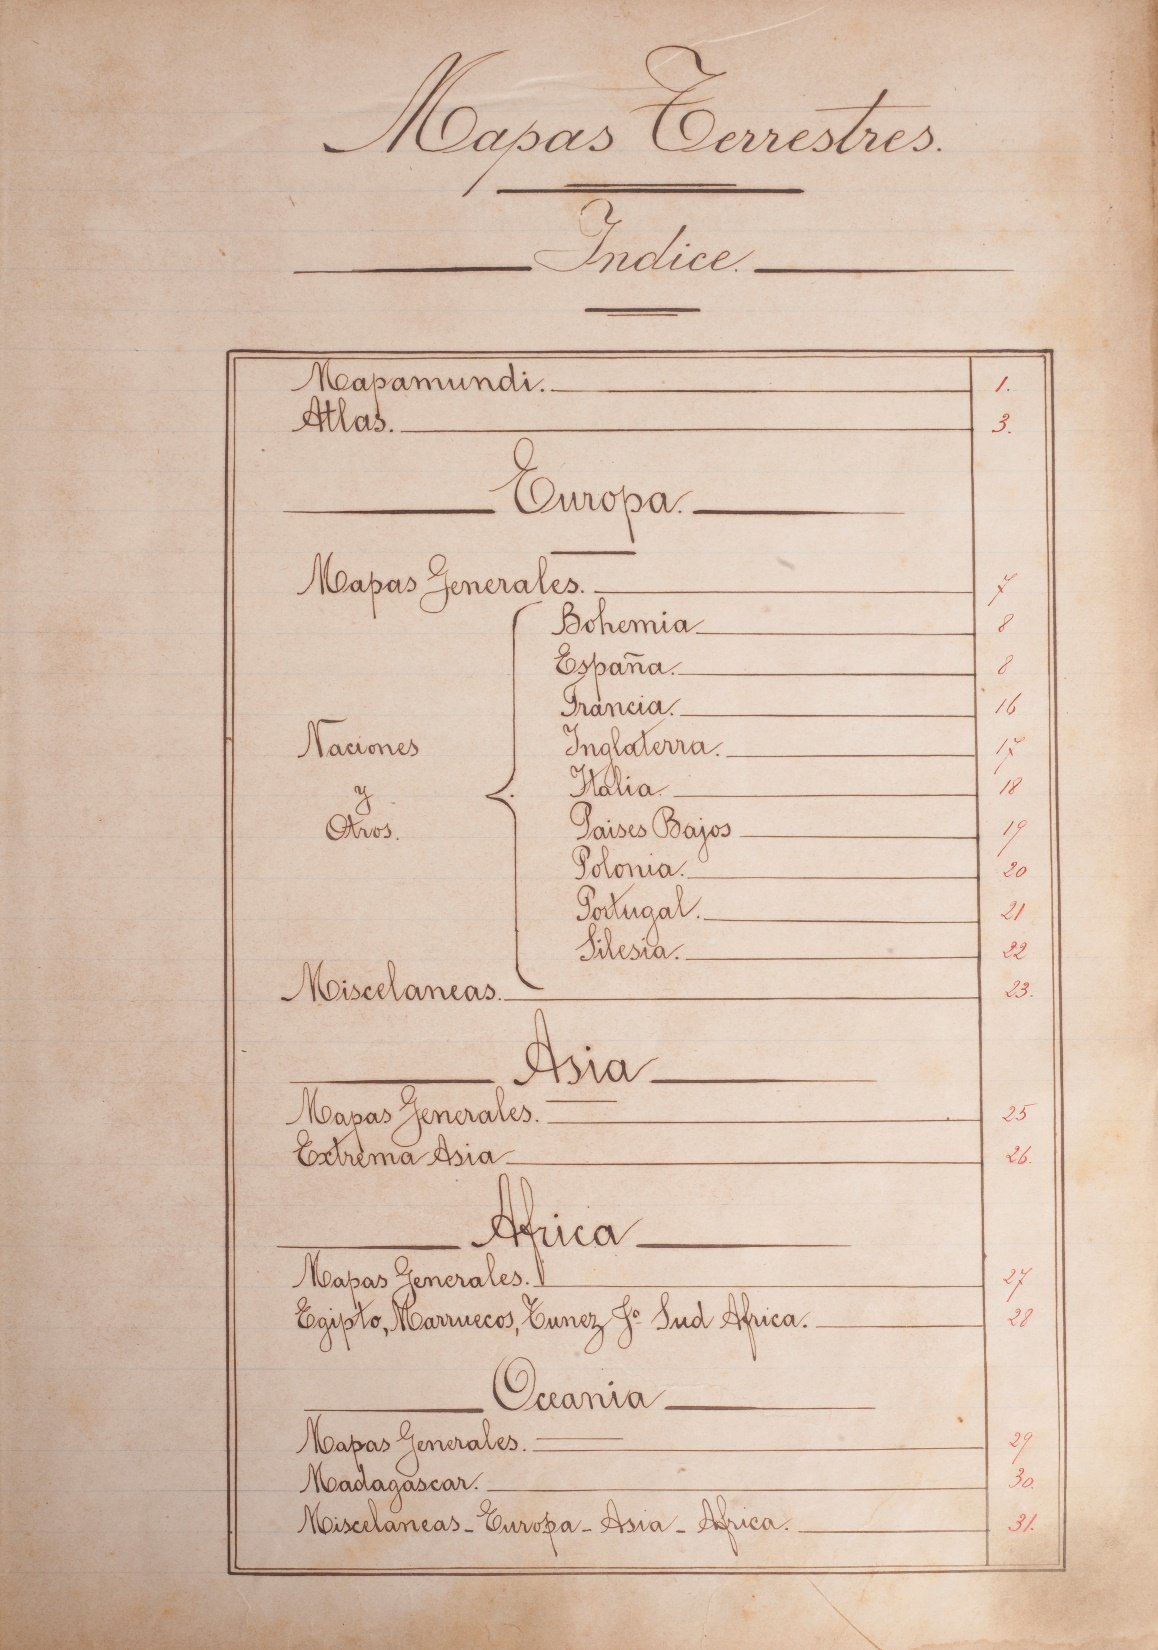 Mapas Terrestres.
Indice.
Mapamundi. 1.
Atlas. 3.
Europa.
Mapas Generales. 7
Bohemia 8
España. 8
Francia. 16
Naciones Inglaterra. 17
y Italia. 18
Otros. Paises Bajos 19
Polonia. 20
Portugal. 21
Silesia. 22
Miscelaneas. 23.
Asia
Mapas Generales. 25
Extrema Asia 26.
Africa
Mapas Generales. 27
Egipto, Marruecos, Tunez Sud Africa. 28
Oceania
Mapas Generales. 29
Madagascar. 30.
Miscelaneas - Europa - Asia - Africa. 31.